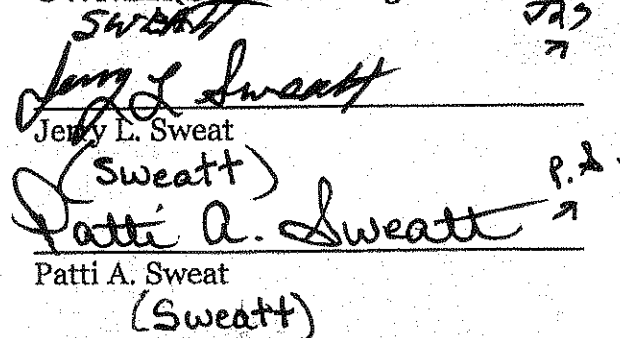 SWEATT JLS
Jerry L Sweatt
Jerry L. Sweat
(Sweatt) P.S.
Patti A. Sweatt
Patti A. Sweat
(Sweatt)